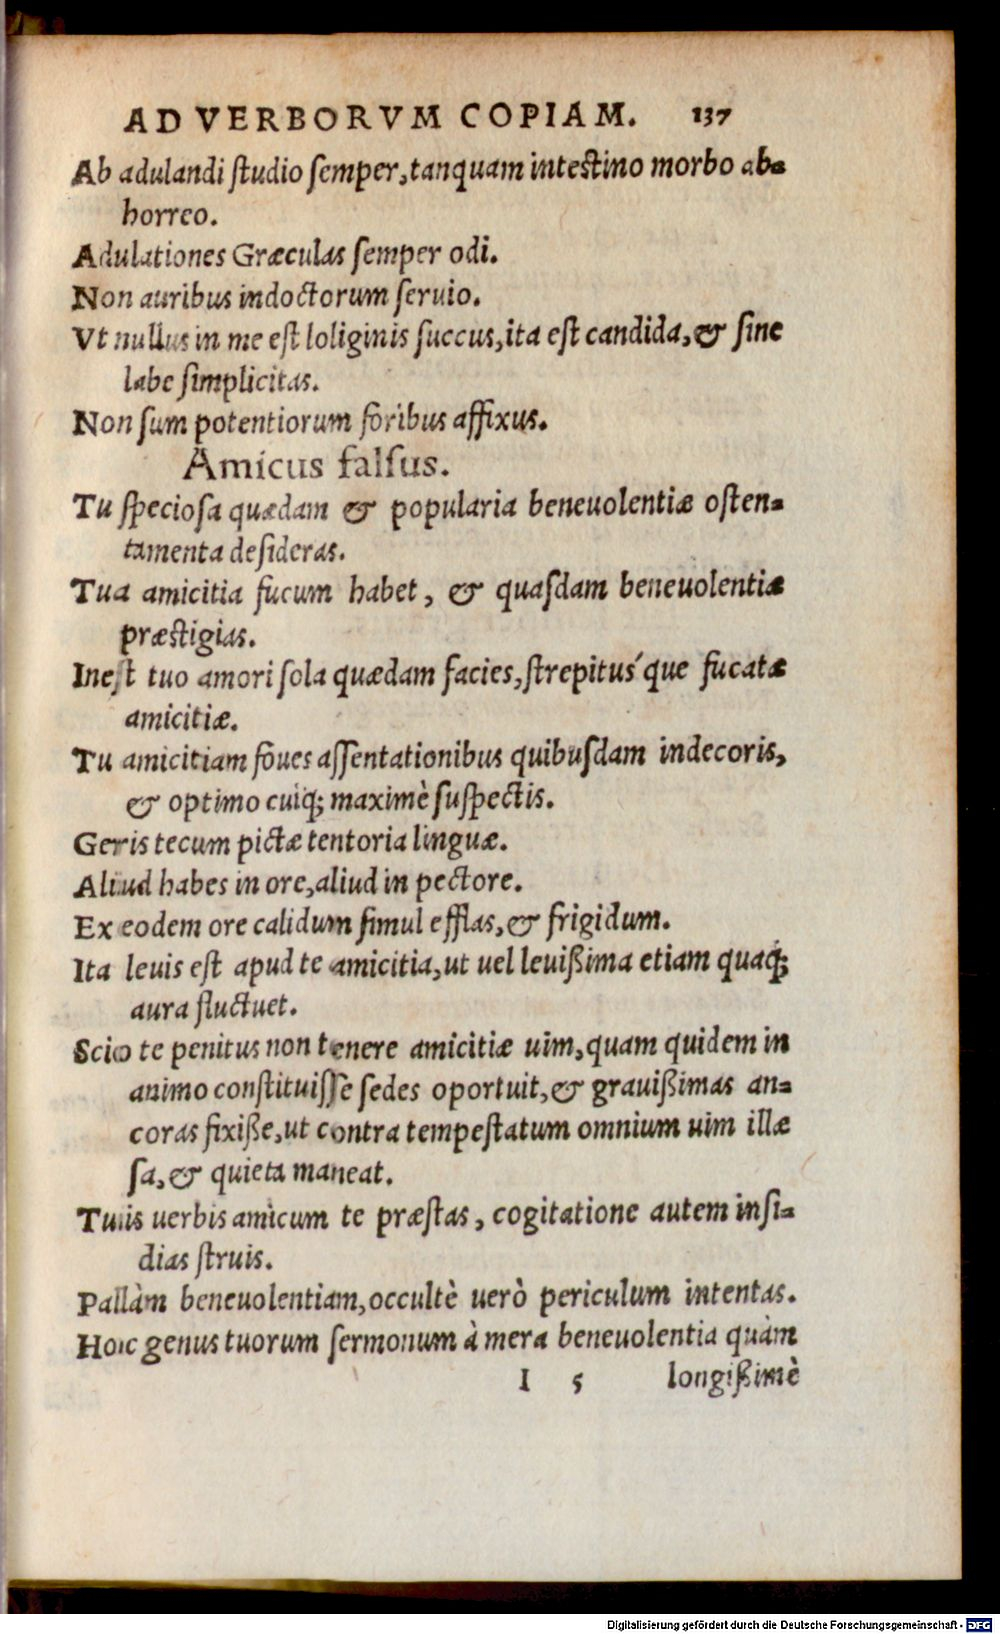 AD VERBORVM COPIAM. 137
Ab adulandi studio semper, tanquam intestino morbo ab-
horreo.
Adulationes Græculas semper odi.
Non auribus indoctorum seruio.
Vt nullus in me est loliginis succus, ita est candida, & sine
labe simplicitas.
Non sum potentiorum foribus affixus.
Amicus falsus.
Tu speciosa quædam & popularia beneuolentiæ osten-
tamenta desideras.
Tua amicitia fucum habet, & quasdam beneuolentiæ
præstigias.
Inest tuo amori sola quædam facies, strepitus´que fucatæ
amicitiæ.
Tu amicitiam foues assentationibus quibusdam indecoris,
& optimo cuiq; maximè suspectis.
Geris tecum pictæ tentoria linguæ.
Aliud habes in ore, aliud in pectore.
Ex eodem ore calidum simul efflas, & frigidum.
Ita leuis est apud te amicitia, ut uel leuißima etiam quaq;
aura fluctuet.
Scio te penitus non tenere amicitiæ uim, quam quidem in
animo constituisse sedes oportuit, & grauißimas an-
coras fixiße, ut contra tempestatum omnium uim illæ
sa, & quieta maneat.
Tuis uerbis amicum te præstas, cogitatione autem insi-
dias struis.
Pallàm beneuolentiam, occultè uerò periculum intentas.
Hoc genus tuorum sermonum à mera beneuolentia quàm
I 5 longißimè
Digitalisierung gefördert durch die Deutsche Forschungsgemeinschaft - DFG